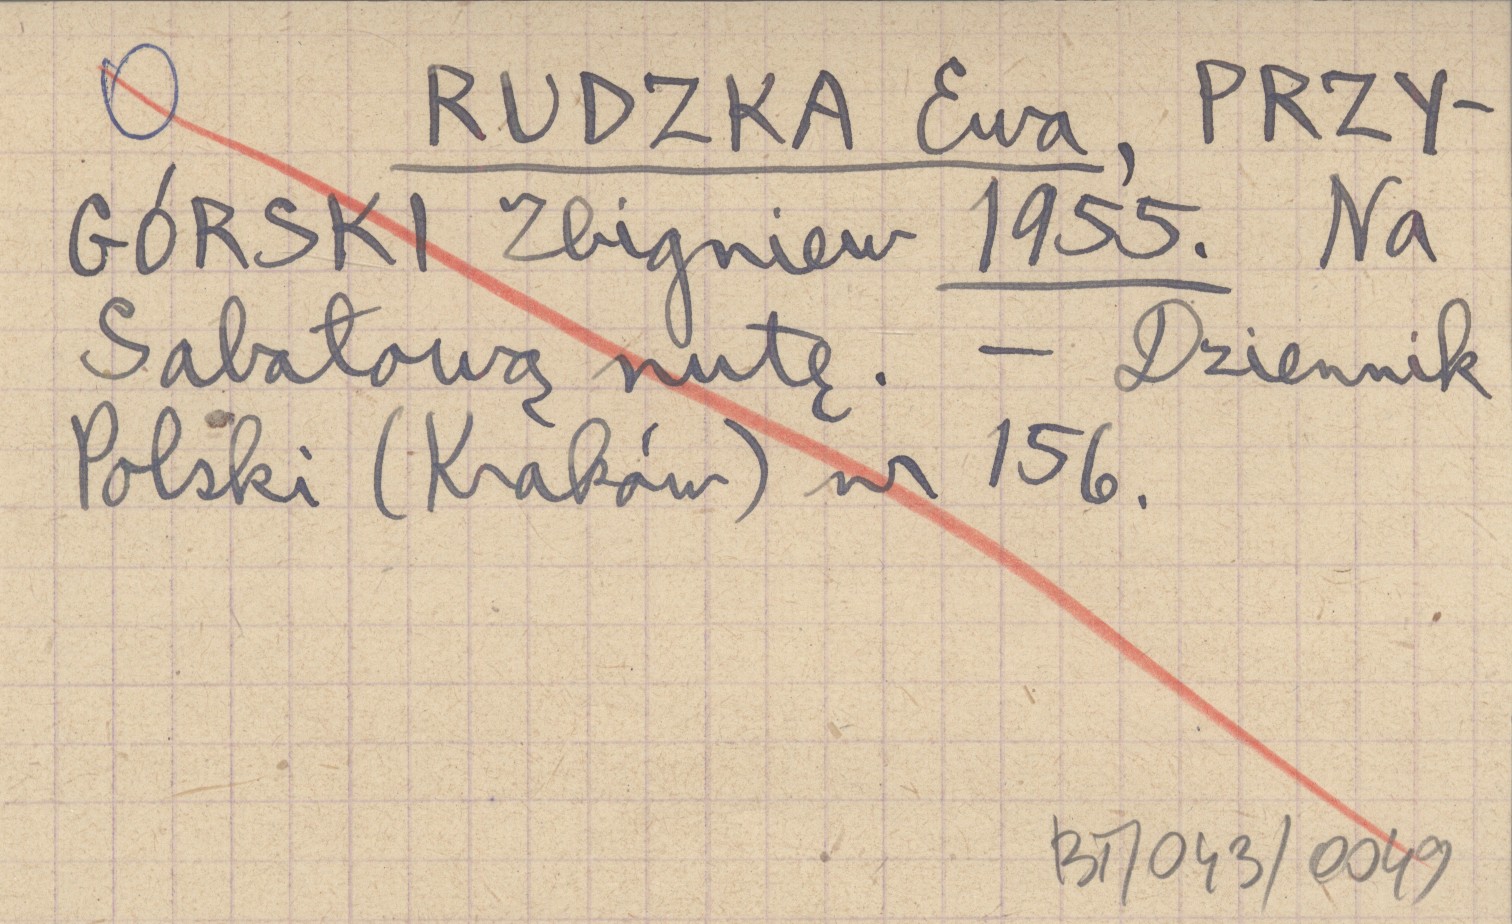 RUDZKA Ewa, PRZY-
GÓRSKI Zbigniew 1955. Na
Sabałową nutę. – Dziennik
Polski (Kraków) nr 156.
BT/043/0049